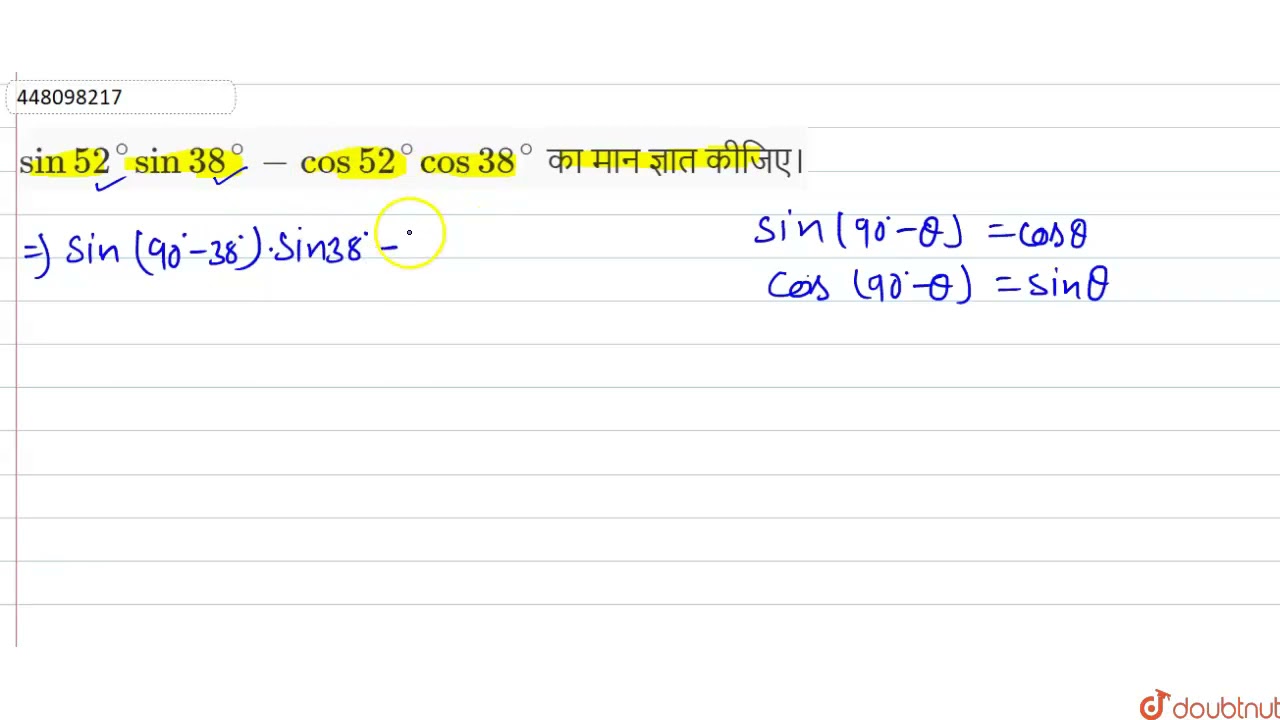 448098217
sin 52° sin 38° − cos 52° cos 38° का मान ज्ञात कीजिए।
sin(90°−θ) = cosθ
⇒) sin(90°−38°)·sin38° −
cos(90°−θ) = sinθ
doubtnut